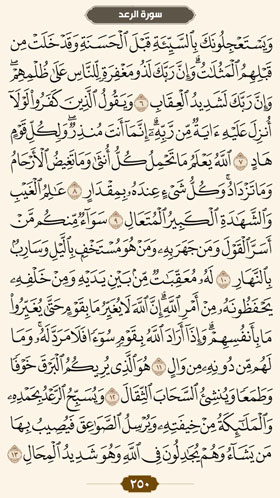 سورة الرعد
وَيَسْتَعْجِلُونَكَ بِٱلسَّيِّئَةِ قَبْلَ ٱلْحَسَنَةِ وَقَدْ خَلَتْ مِن
قَبْلِهِمُ ٱلْمَثُلَٰتُ ۗ وَإِنَّ رَبَّكَ لَذُو مَغْفِرَةٍ لِّلنَّاسِ عَلَىٰ ظُلْمِهِمْ ۖ
وَإِنَّ رَبَّكَ لَشَدِيدُ ٱلْعِقَابِ ٦ وَيَقُولُ ٱلَّذِينَ كَفَرُوا۟ لَوْلَآ
أُنزِلَ عَلَيْهِ ءَايَةٌ مِّن رَّبِّهِۦٓ ۗ إِنَّمَآ أَنتَ مُنذِرٌ ۖ وَلِكُلِّ قَوْمٍ
هَادٍ ٧ ٱللَّهُ يَعْلَمُ مَا تَحْمِلُ كُلُّ أُنثَىٰ وَمَا تَغِيضُ ٱلْأَرْحَامُ
وَمَا تَزْدَادُ ۖ وَكُلُّ شَىْءٍ عِندَهُۥ بِمِقْدَارٍ ٨ عَٰلِمُ ٱلْغَيْبِ
وَٱلشَّهَٰدَةِ ٱلْكَبِيرُ ٱلْمُتَعَالِ ٩ سَوَآءٌ مِّنكُم مَّنْ
أَسَرَّ ٱلْقَوْلَ وَمَن جَهَرَ بِهِۦ وَمَنْ هُوَ مُسْتَخْفٍۭ بِٱلَّيْلِ وَسَارِبٌۢ
بِٱلنَّهَارِ ١٠ لَهُۥ مُعَقِّبَٰتٌ مِّنۢ بَيْنِ يَدَيْهِ وَمِنْ خَلْفِهِۦ
يَحْفَظُونَهُۥ مِنْ أَمْرِ ٱللَّهِ ۗ إِنَّ ٱللَّهَ لَا يُغَيِّرُ مَا بِقَوْمٍ حَتَّىٰ يُغَيِّرُوا۟
مَا بِأَنفُسِهِمْ ۗ وَإِذَآ أَرَادَ ٱللَّهُ بِقَوْمٍ سُوٓءًا فَلَا مَرَدَّ لَهُۥ ۚ وَمَا
لَهُم مِّن دُونِهِۦ مِن وَالٍ ١١ هُوَ ٱلَّذِى يُرِيكُمُ ٱلْبَرْقَ خَوْفًا
وَطَمَعًا وَيُنشِئُ ٱلسَّحَابَ ٱلثِّقَالَ ١٢ وَيُسَبِّحُ ٱلرَّعْدُ بِحَمْدِهِۦ
وَٱلْمَلَٰٓئِكَةُ مِنْ خِيفَتِهِۦ وَيُرْسِلُ ٱلصَّوَٰعِقَ فَيُصِيبُ بِهَا
مَن يَشَآءُ وَهُمْ يُجَٰدِلُونَ فِى ٱللَّهِ وَهُوَ شَدِيدُ ٱلْمِحَالِ ١٣
٢٥٠